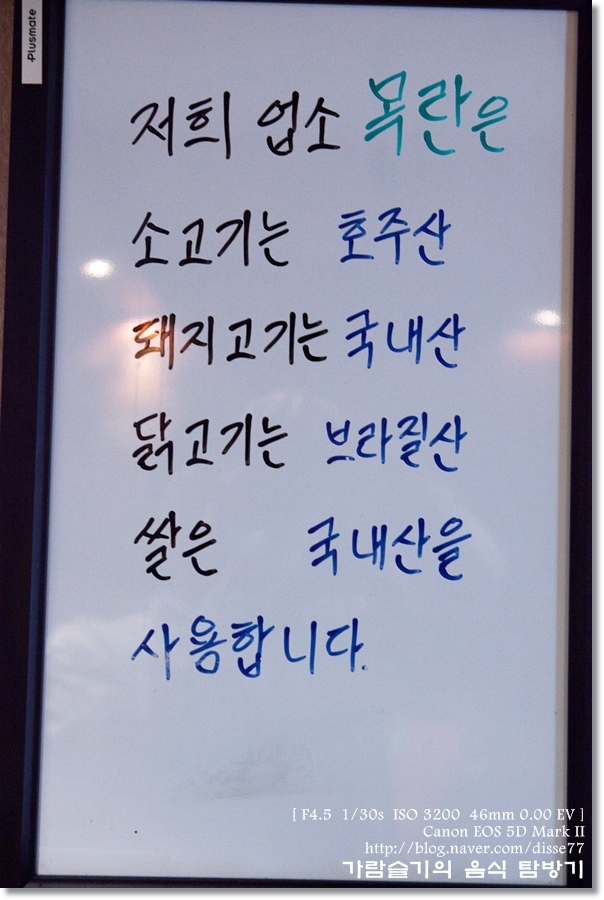 Plusmate
저희 업소 목란은
소고기는 호주산
돼지고기는 국내산
닭고기는 브라질산
쌀은 국내산을
사용합니다.
[ F4.5 1/30s ISO 3200 46mm 0.00 EV ]
Canon EOS 5D Mark II
http://blog.naver.com/disse77
가람슬기의 음식 탐방기